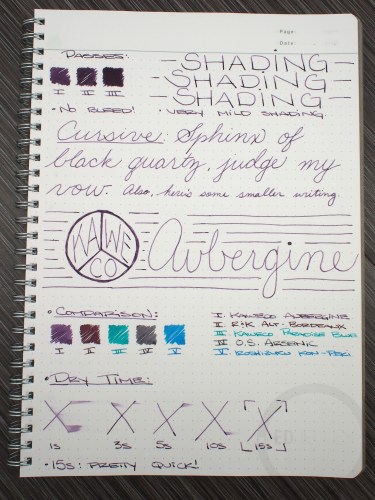 Page:
Date:
PASSES:
I II III
- SHADING -
- SHADING -
- SHADING -
• NO BLEED!
• VERY MILD SHADING.
Cursive: Sphinx of
black quartz, judge my
vow. Also, here's some smaller writing.
KAWECO
Aubergine
• COMPARISON:
I II III IV V
I. KAWECO AUBERGINE
II. R+K ALT-BORDEAUX
III. KAWECO PARADISE BLUE
IV. O.S. ARSENIC
V. IROSHIZUKU KON-PEKI
• DRY TIME:
1S 3S 5S 10S [15S]
• 15S: PRETTY QUICK!